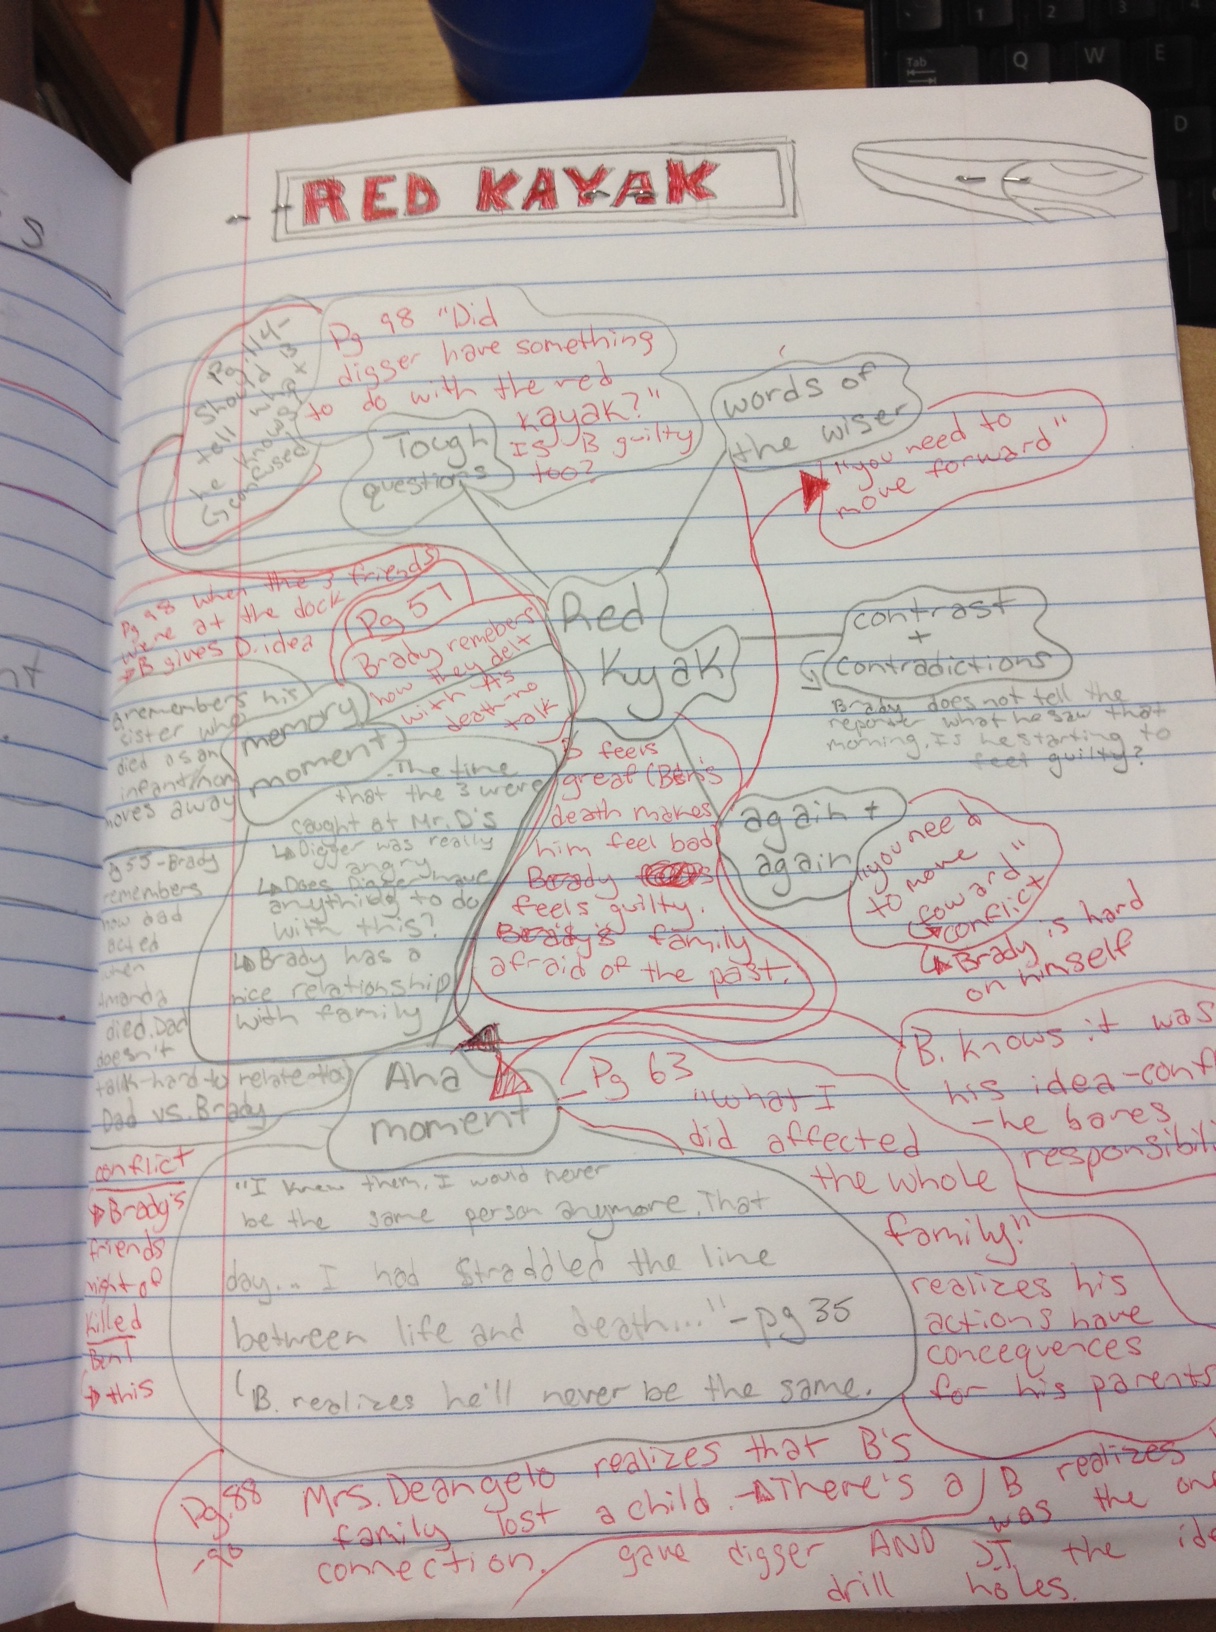 RED KAYAK
Pg 114-
Should B
tell what
he knows?
↳ confused
Pg 98 "Did
digger have something
to do with the red
kayak?"
Is B guilty
too?
Tough
questions
words of
the wiser
"you need to
move forward"
Red
Kyak
contrast
+
contradictions
Brady does not tell the
reporter what he saw that
morning. Is he starting to
feel guilty?
Pg 98 when the 3 friends
were at the dock
→B gives D. idea
Pg 57
Brady remebers
how they delt
with his
death-no
talk
memory
moment
remembers his
sister who
died as an
infant/mom
moves away
pg 55-Brady
remembers
how dad
acted
when
Amanda
died. Dad
doesn't
talk-hard to relate to
Dad vs. Brady
The time
that the 3 were
caught at Mr. D's
↳ Digger was really
angry
↳ Does Digger have
anything to do
with this?
↳ Brady has a
nice relationship
with family
B feels
great (Ben's
death makes
him feel bad
Brady
feels guilty.
Brady's family
afraid of the past.
again +
again
"you need
to move
foward"
→conflict
↳ Brady is hard
on himself
B. knows it was
his idea-conf
-he bares
responsibili
Aha
moment
Pg 63
"what I
did affected
the whole
family."
realizes his
actions have
conceqences
for his parents
conflict
→Brady's
friends
might of
killed
Ben!
↳ this
"I knew them, I would never
be the same person anymore. That
day... I had straddled the line
between life and death..." -pg 35
(B. realizes he'll never be the same.
Pg. 88
-90
Mrs. Deangelo realizes that B's
family lost a child. → There's a
connection.
B realizes
was the one
gave digger AND J.T the ide
drill holes.